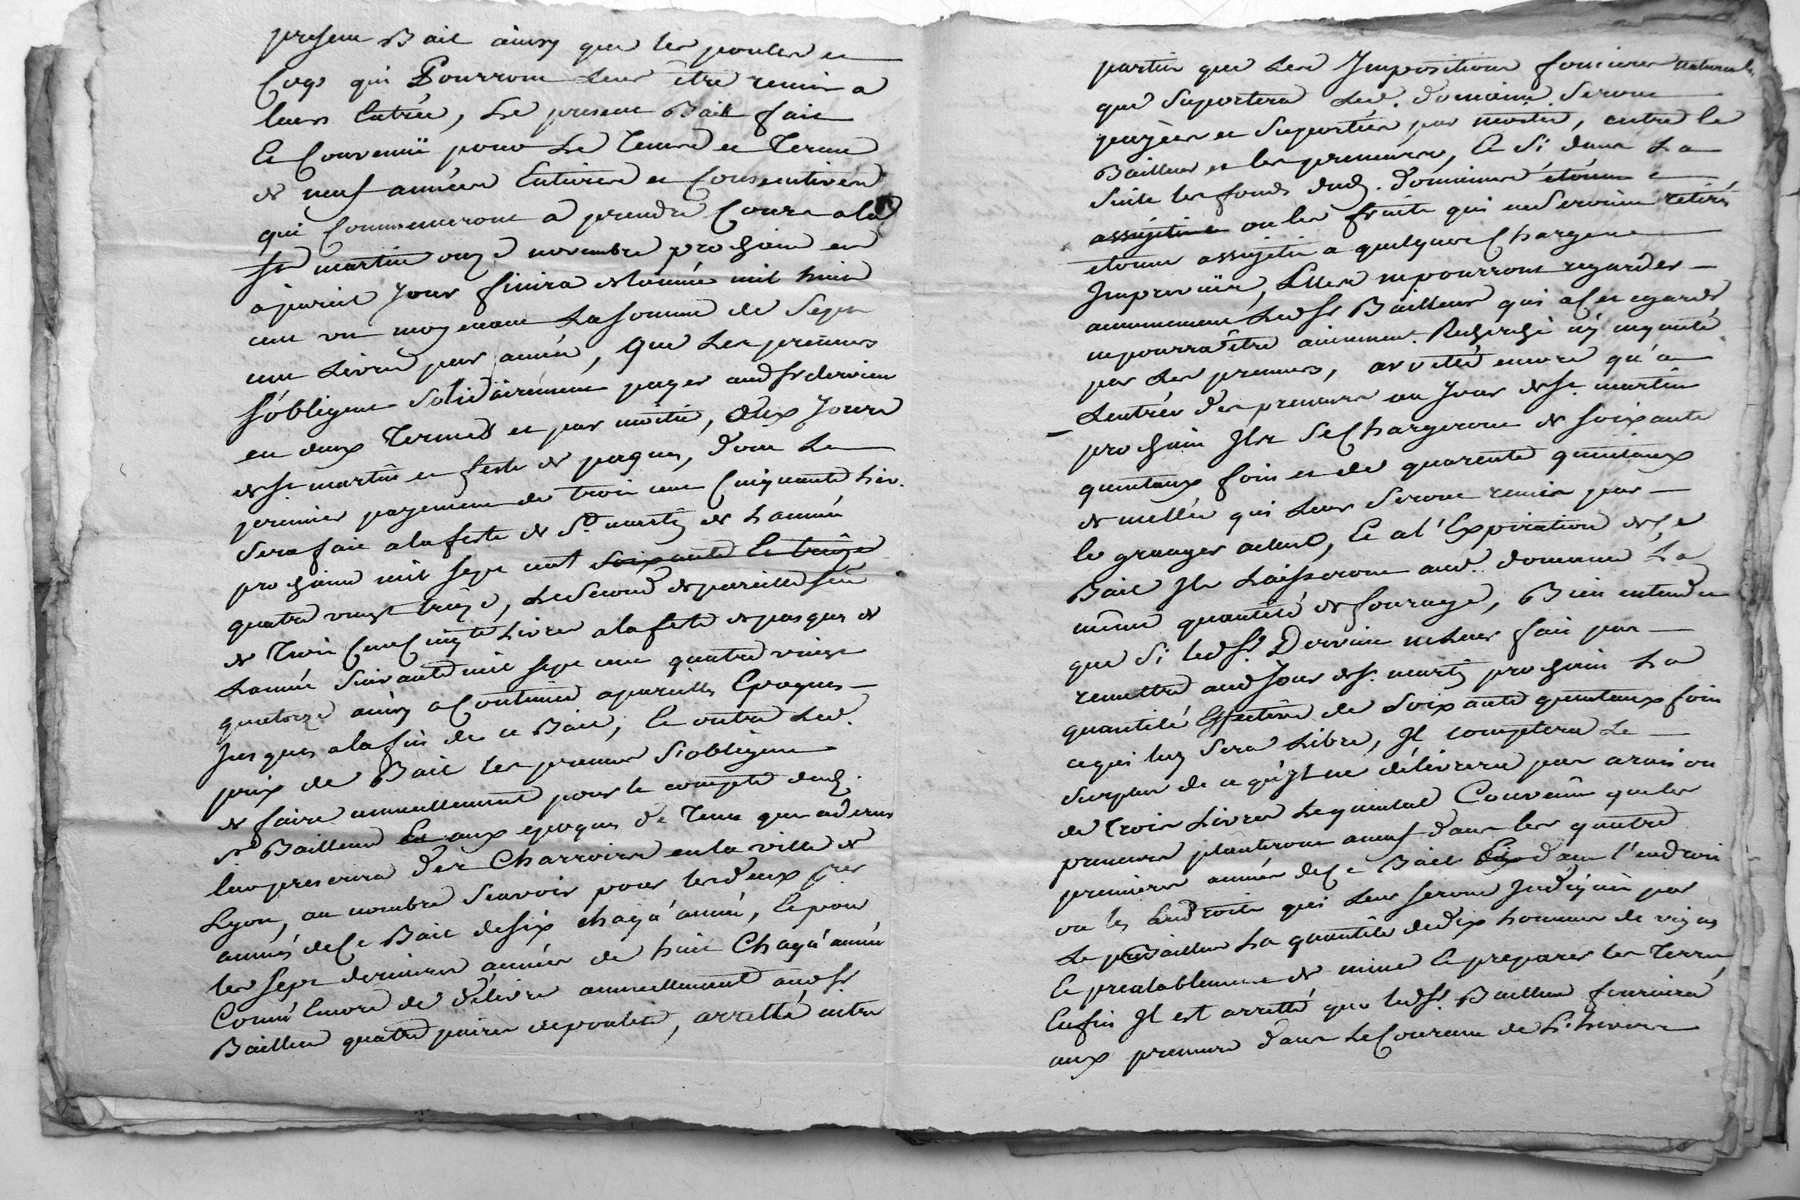 present Bail ainsy que les poules et
Coqs qui Pourront Leur être remis a
leurs Entrée, Le present Bail fait
Et Convenü pour Le Tems et Terme
de neuf années Entieres et Consecutives
qui Commenceront a prendre Cours a la
St martin onze novembre prochain et
a pareil Jour finira de l'année mil huit
cent un moyenant La somme de Sept
cent Livres par année, Que Les preneurs
s'obligent Solidairement payer audt Sr dervieu
en deux Termes et par moitié, aux Jours
de St martin et feste de paques, dont Le
premier payement de trois cent Cinquante Liv.
Sera fait a la feste de St martin de L'année
prochaine mil sept cent soixante Et treize
quatre vingt treize, Le Second de pareille som
de Trois Cent Cinqte Livres a la fete de pasques de
L'année Suivante mil sept cent quatre vingt
quatorze ainsy a Continuer a pareilles Epoques
Jusques a la fin de ce Bail, Et outre Led.
prix de Bail les preneurs S'obligent
de faire annuellement pour le compte dud.
Sr Bailleur Et aux epoques de Tems que ce dernier
leur prescrira des Charrois en la ville de
Lyon, au nombre Scavoir pour les deux pres
années de Ce Bail de Six chaqu'année, Et pour
les sept dernieres années de huit Chaqu'année
Comme Encore de délivrer annuellement audt Sr
Bailleur quatre paires de poulets, arretté entre
parties que Les Impositions foncieres naturelles
que Suportera Led. domaine Seront
payées et Suportées par moitié, entre le
Bailleur et les preneurs, Et Si dans La
Suite les fonds dud. domaine étoient
assujetis ou les fruits qui en Seroient retirés
etoient assujetis a quelques Charges
Imprevües, Elles ne pourront regarder
aucunement Ledt Sr Bailleur qui a cet egard
ne pourra être aucunement Recherché ny inquiété
par Les preneurs, arretté encore qu'a
L'entrée des preneurs au Jour de St martin
prochain Ils Se Chargeront de soixante
quintaux foin et de quarente quintaux
de mellée qui Leur Seront remis par
le granger actuel, Et a l'Expiration de Ce
Bail Ils Laisseront aud. domaine La
même quantité de fourage, Bien entendu
que Si led Sr Dervieu ne Leur fait pas
remettre aud Jour de St marti prochain La
quantité Effective de Soixante quintaux foin
ce qui luy Sera Libre, Il comptera Le
Surplus de ce qu'Il ne délivrera pas a raison
de Trois Livres Le quintal Convenu que les
preneurs planteront a neuf dans les quatre
premieres années de Ce Bail dans l'endroit
ou les Endroits qui Leur seront Indiqués par
Le Sr Bailleur La quantité de dix hommes de vignes
Et prealablement de miner Et preparer les Terres
Enfin Il est arretté que led Sr Bailleur fournira
aux preneurs dans Le Courant de L'hivers